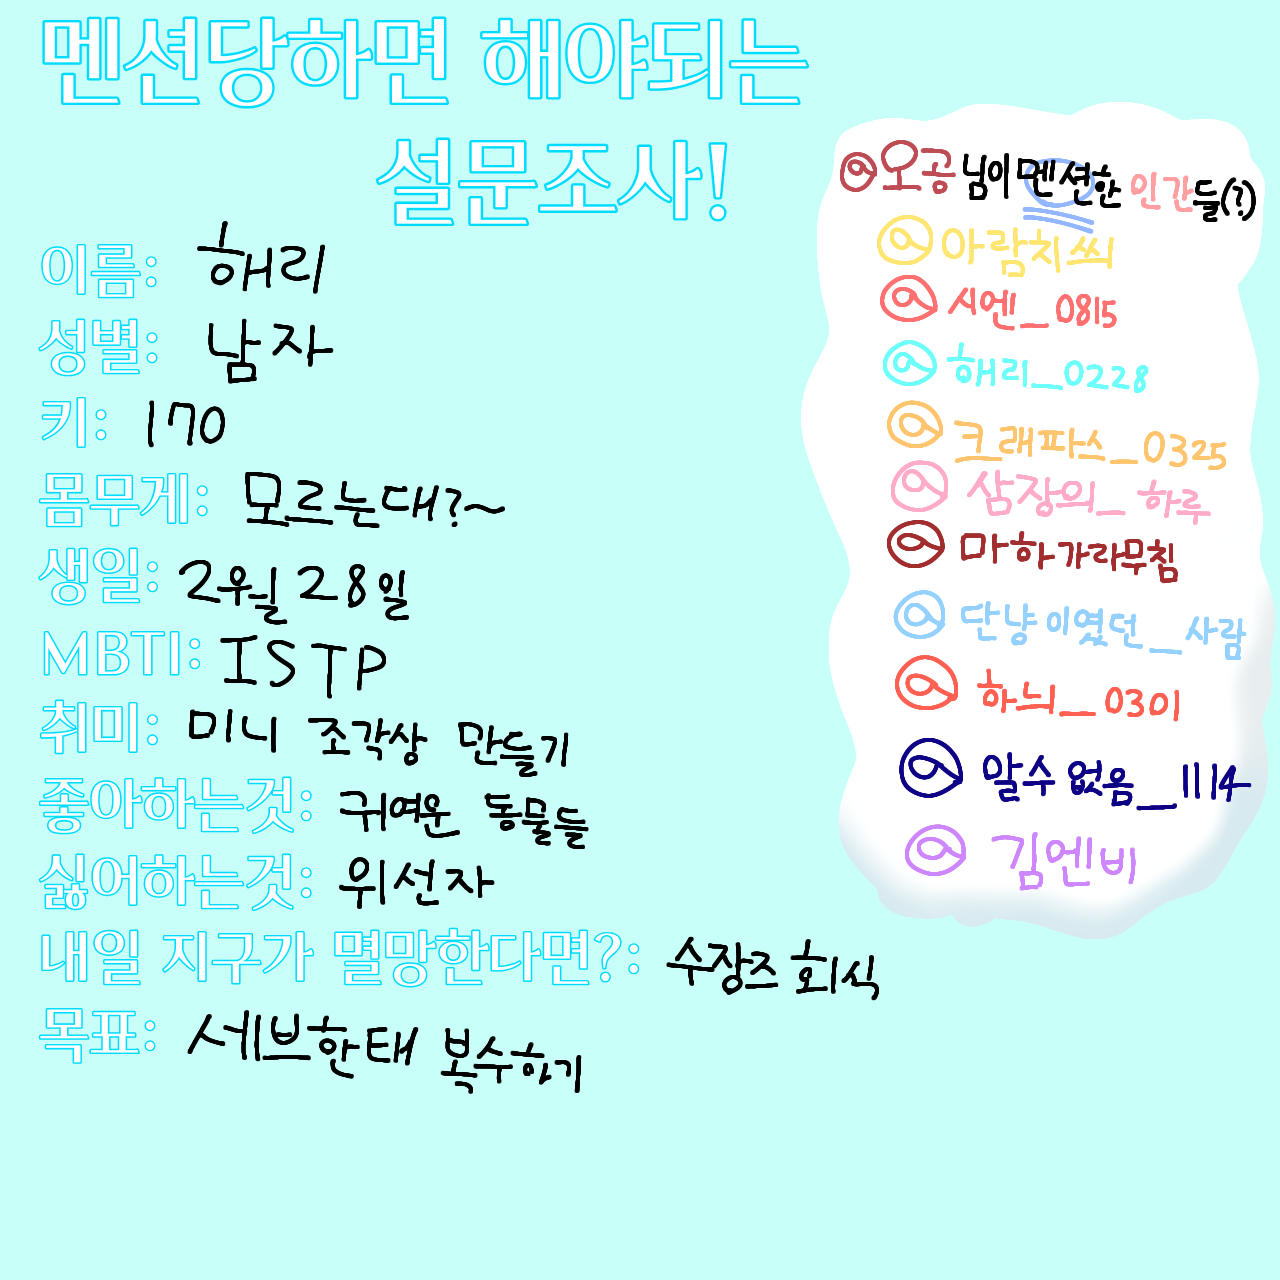 멘션당하면 해야되는
설문조사!
이름: 해리
성별: 남자
키: 170
몸무게: 모르는대?~
생일: 2월 28일
MBTI: ISTP
취미: 미니 조각상 만들기
좋아하는것: 귀여운 동물들
싫어하는것: 위선자
내일 지구가 멸망한다면?: 수장즈 회식
목표: 세브한태 복수하기
@오공님이 멘션한 인간들(?)
@아람치씨
@시엔_0815
@해리_0228
@크래파스_0325
@삼장의_하루
@마하가라무침
@단냥이였던_사람
@하늬_0301
@알수없음_1114
@김엔비